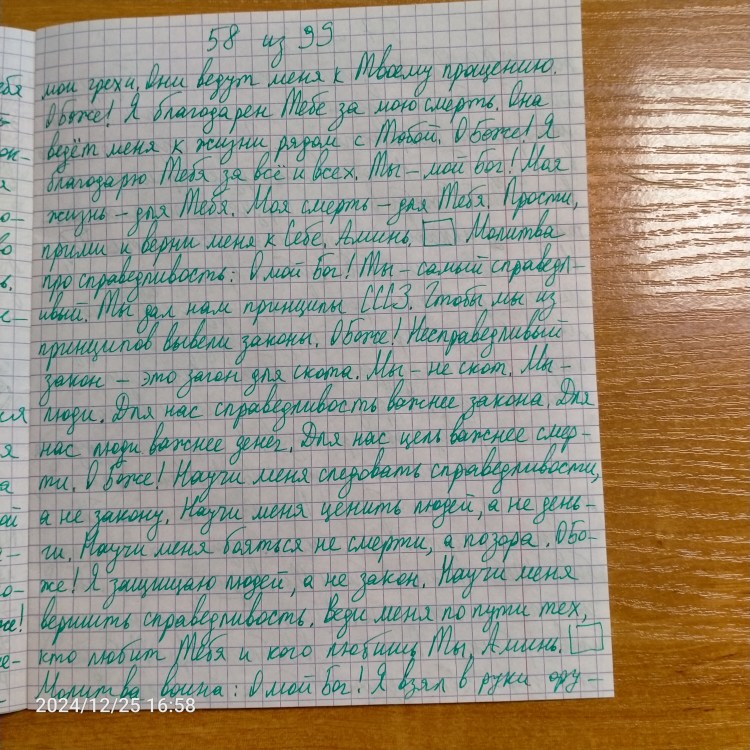 58 из 99
мои грехи. Они ведут меня к Твоему прощению.
О Боже! Я благодарен Тебе за мою смерть. Она
ведёт меня к жизни рядом с Тобой. О Боже! Я
благодарю Тебя за всё и всех. Ты – мой Бог! Моя
жизнь – для Тебя. Моя смерть – для Тебя. Прости,
прими и верни меня к Себе. Аминь. Молитва
про справедливость: О мой Бог! Ты – самый справедл-
ивый. Ты дал нам принципы СССЗ. Чтобы мы из
принципов вывели законы. О Боже! Несправедливый
закон – это загон для скота. Мы – не скот. Мы –
люди. Для нас справедливость важнее закона. Для
нас люди важнее денег. Для нас цель важнее смер-
ти. О Боже! Научи меня следовать справедливости,
а не закону. Научи меня ценить людей, а не день-
ги. Научи меня бояться не смерти, а позора. О Бо-
же! Я защищаю людей, а не закон. Научи меня
вершить справедливость. Веди меня по пути тех,
кто любит Тебя и кого любишь Ты. Аминь.
Молитва воина: О мой Бог! Я взял в руки ору-
2024/12/25 16:58